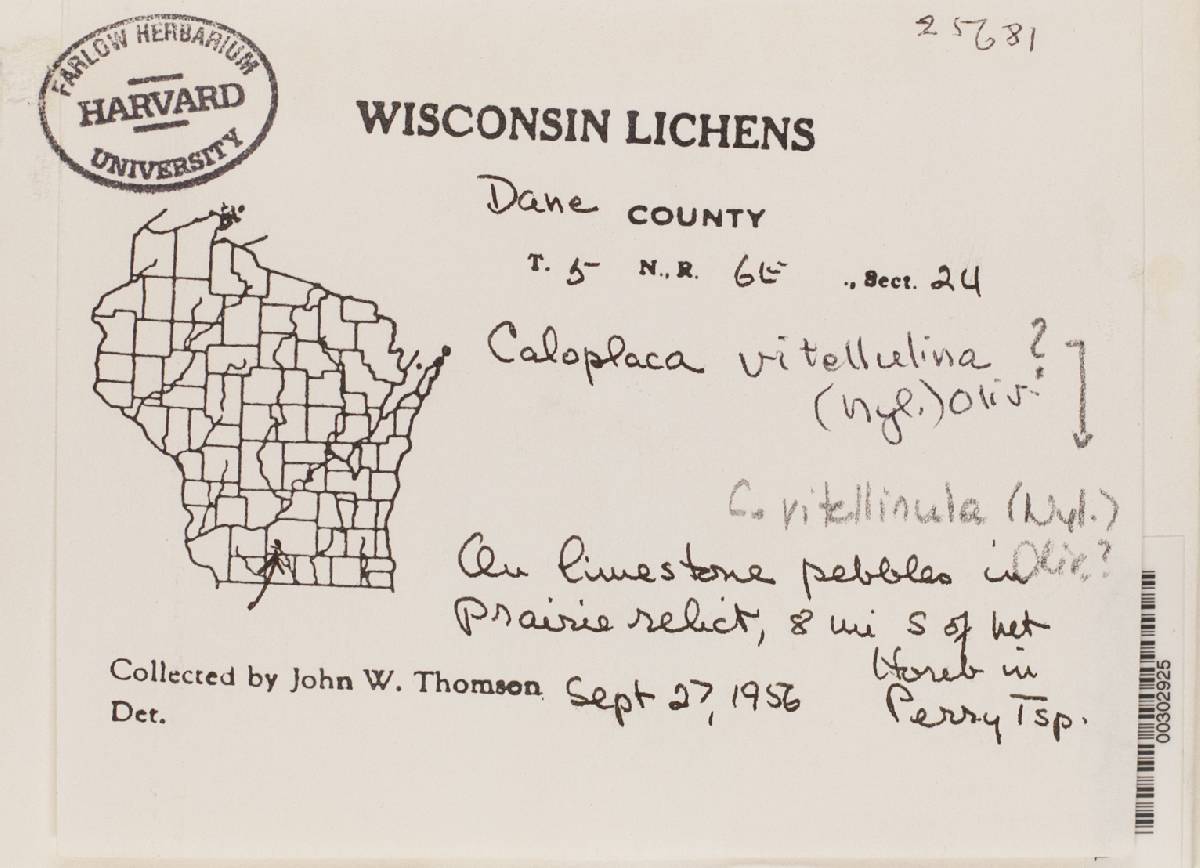 25681
FARLOW HERBARIUM
HARVARD
UNIVERSITY
WISCONSIN LICHENS
Dane COUNTY
T. 5 N., R. 6E ., Sect. 24
Caloplaca vitellulina ?
(Nyl.) Oliv.
C. vitellinula (Nyl.)
Oliv.?
On limestone pebbles in
Prairie relict, 8 mi S of Mt
Horeb in
Perry Tsp.
Collected by John W. Thomson Sept 27, 1956
Det.
00302925